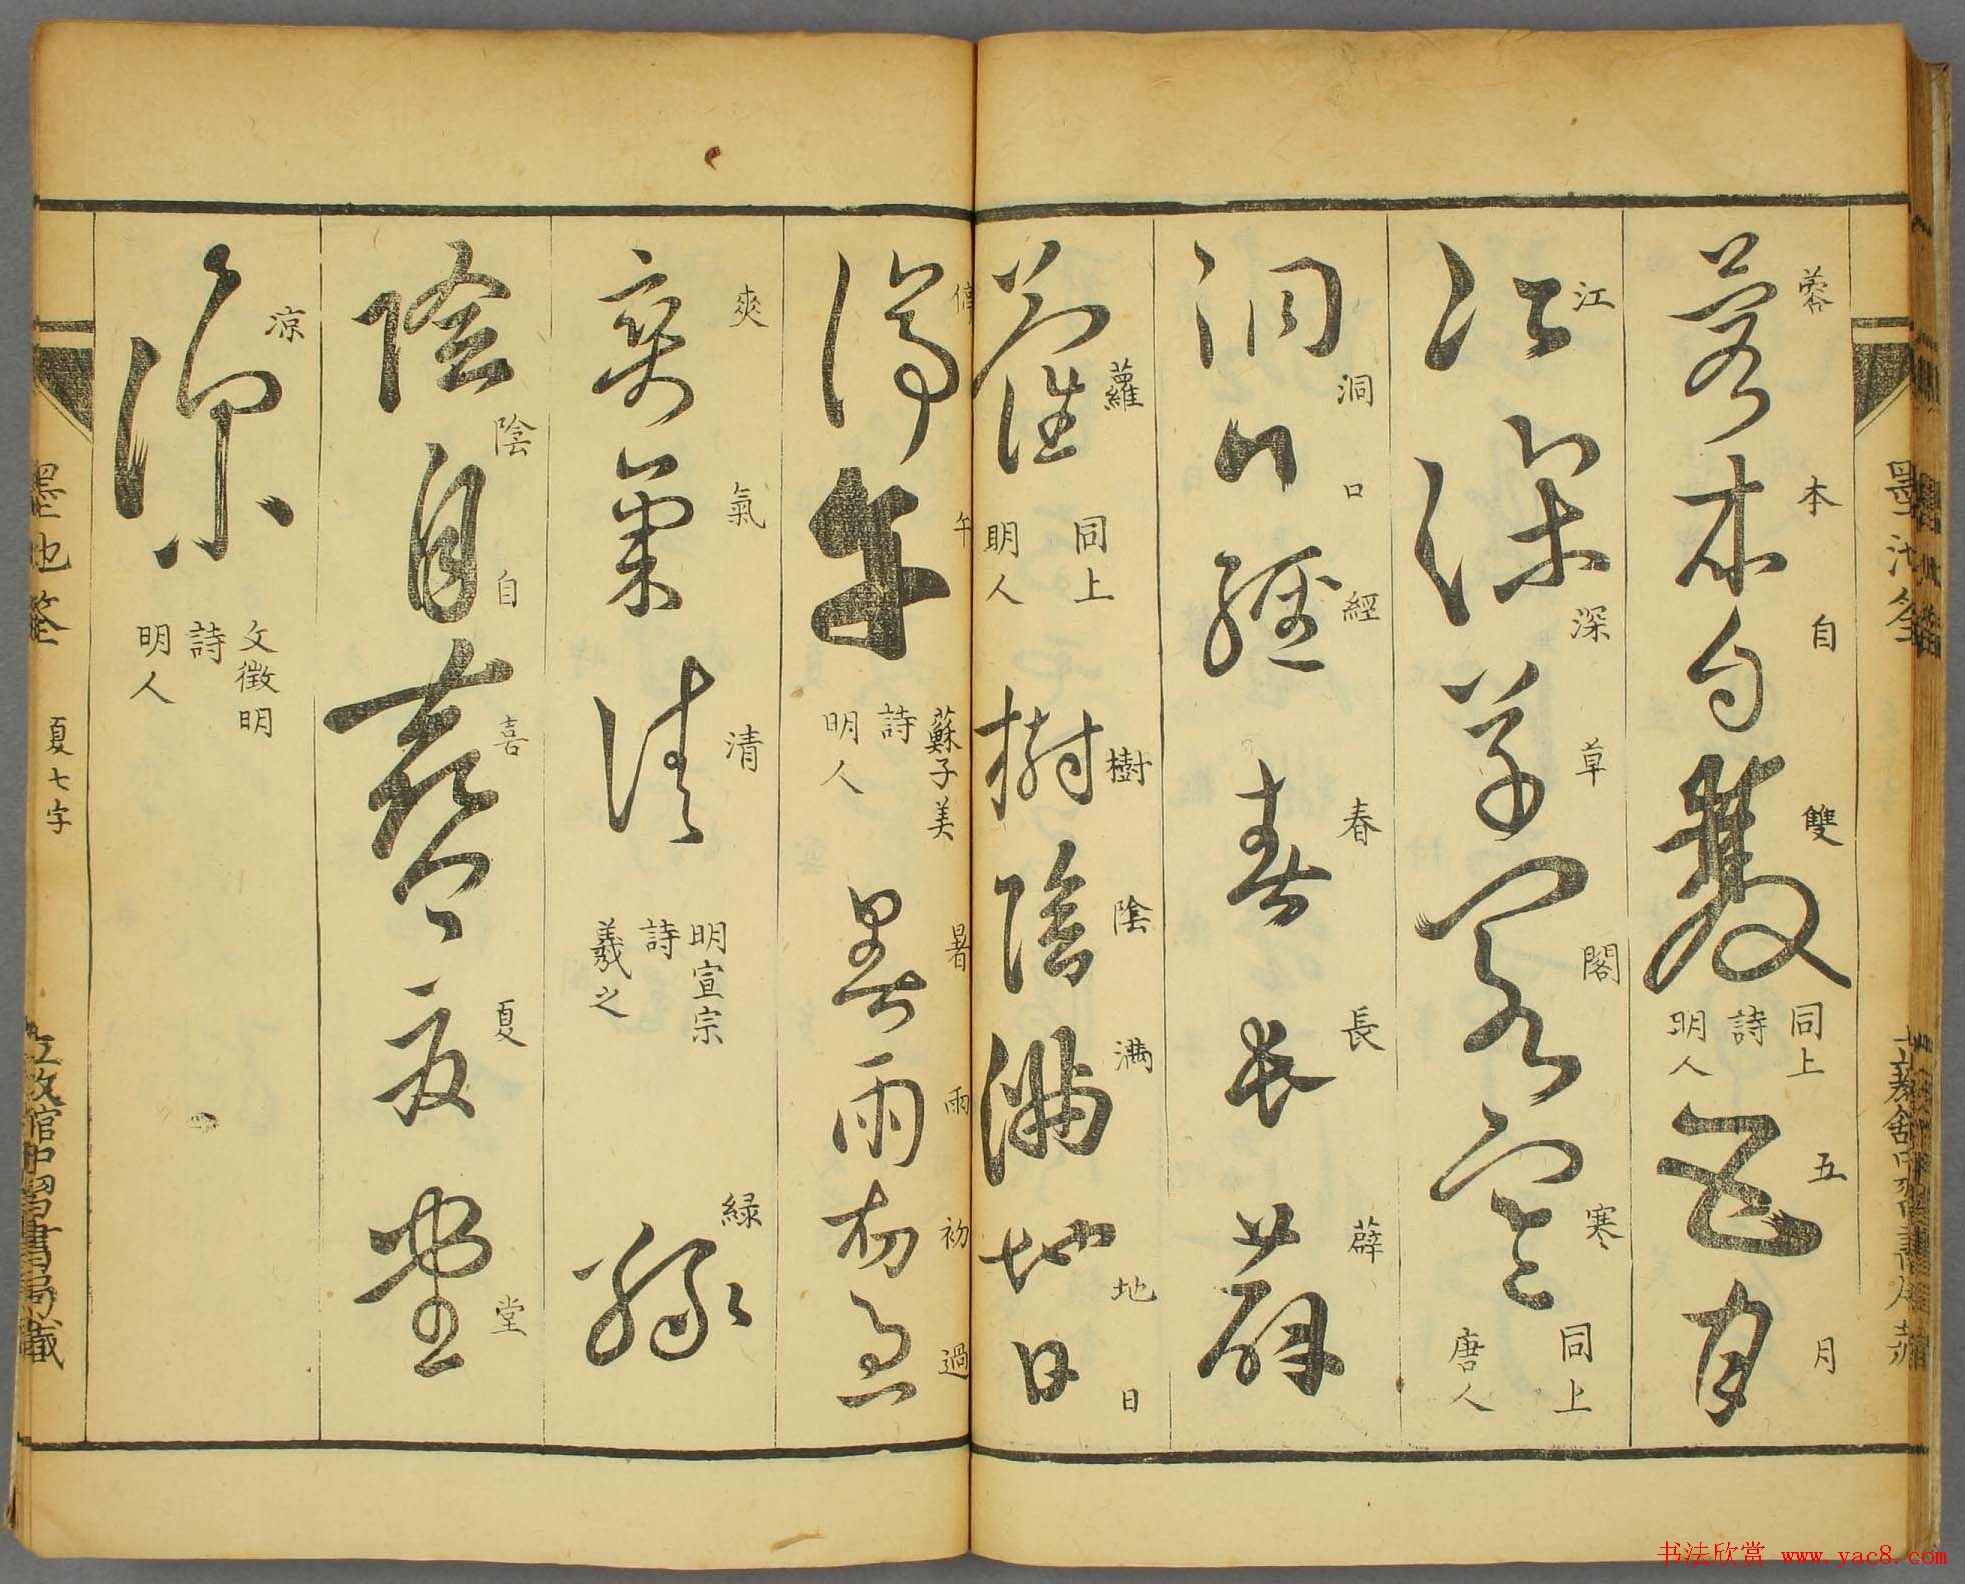 蓉本自雙
同上
詩
明人
五月
江深草閣寒
同上
唐人
洞口經春長薜
蘿
同上
明人
樹陰滿地日
停午
蘇子美
詩
明人
暑雨初過
爽氣清
明宣宗
詩
羲之
緑
陰自喜夏堂
凉
文徵明
詩
明人
夏七字
书法欣赏 www.yac8.com